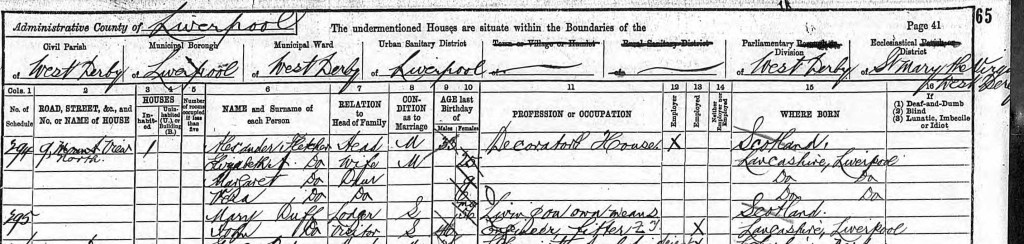 Administrative County of Liverpool The undermentioned Houses are situate within the Boundaries of the Page 41 65
Civil Parish Municipal Borough Municipal Ward Urban Sanitary District Town or Village or Hamlet Rural Sanitary District Parliamentary Borough or Division Ecclesiastical Parish or District
of West Derby of Liverpool of West Derby of Liverpool of of of West Derby of St Mary the Virgin West Derby
Cols. 1 2 3 4 5 6 7 8 9 10 11 12 13 14 15 16
No. of Schedule ROAD, STREET, &c., and No. or NAME of HOUSE HOUSES Inhabited Uninhabited (U.) or Building (B.) Number of rooms occupied if less than five NAME and Surname of each Person RELATION to Head of Family CONDITION as to Marriage AGE last Birthday of Males Females PROFESSION or OCCUPATION Employer Employed Neither Employer nor Employed WHERE BORN If (1) Deaf-and-Dumb (2) Blind (3) Lunatic, Imbecile or Idiot
294 9, Mount View North 1 Alexander Fletcher Head M Decorator Houses X Scotland
Elizabeth A. Do Wife M Lancashire, Liverpool
Margaret Do Daur 9 Do Do
Do Do Do Do
295 Mary Duff Lodger S Living on own means Scotland
John Do Visitor S Engineer Fitter X Lancashire, Liverpool